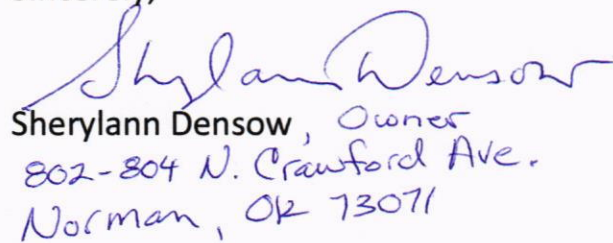 Sherylann Densow
Sherylann Densow, Owner
802-804 N. Crawford Ave.
Norman, OK 73071